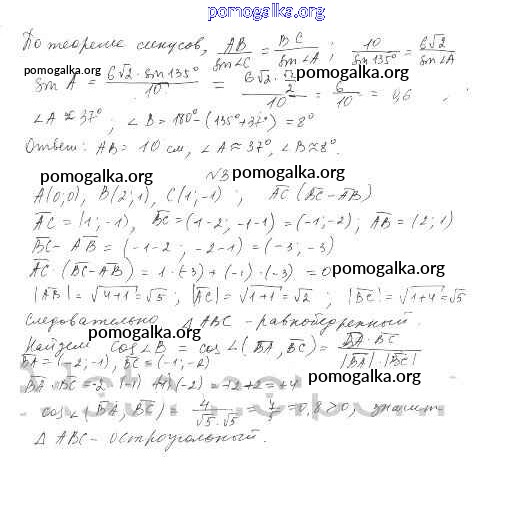 pomogalka.org
По теореме синусов, AB/sin∠C = BC/sin∠A ; 10/sin135° = 6√2/sin∠A
pomogalka.org pomogalka.org
sin A = 6√2 · sin135°/10 = 6√2 · √2/2/10 = 6/10 = 0,6
∠A ≈ 37° ; ∠B = 180° - (135° + 37°) = 8°
Ответ: AB = 10 см, ∠A ≈ 37°, ∠B ≈ 8°.
pomogalka.org №3 pomogalka.org
A(0;0), B(2;1), C(1;-1) ; AC (BC - AB)
AC = (1; -1), BC = (1-2; -1-1) = (-1; -2) ; AB = (2; 1)
BC - AB = (-1-2; -2-1) = (-3; -3)
AC · (BC - AB) = 1 · (-3) + (-1) · (-3) = 0 pomogalka.org
|AB| = √4+1 = √5 ; |AC| = √1+1 = √2 ; |BC| = √1+4 = √5
Следовательно, Δ ABC - равнобедренный.
pomogalka.org
Найдем cos∠B = cos∠(BA, BC) = BA · BC/|BA| · |BC|
BA = (-2; -1), BC = (-1; -2)
BA · BC = -2 · (-1) (-2) = +2+2 = +4 pomogalka.org
cos∠(BA, BC) = 4/√5 · √5 = 4/5 = 0,8 > 0, значит
Δ ABC - остроугольный.